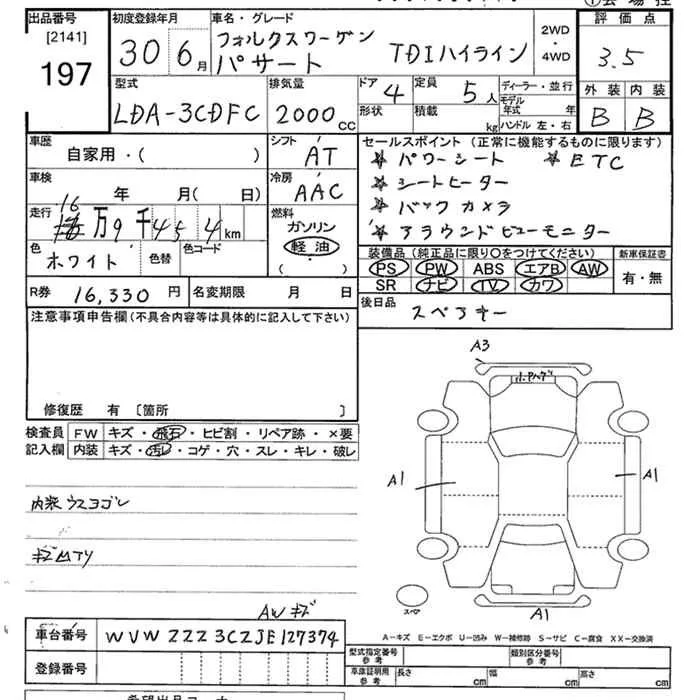 出品番号
[2141]
197
初度登録年月
30 6月
車名・グレード
フォルクスワーゲン
パサート TDIハイライン
2WD
・
4WD
評価点
3.5
外装 内装
B B
型式
LDA-3CDFC
排気量
2000cc
ドア 4
形状
定員 5人
積載 kg
ディーラー・並行
モデル年式 年
ハンドル 左・右
車歴
自家用・( )
シフト
AT
車検
年 月( 日)
冷房
AAC
走行
16万9千454km
燃料
ガソリン
軽油
( )
色
ホワイト
色替
色コード
R券 16,330円
名変期限 月 日
セールスポイント(正常に機能するものに限ります)
☆ パワーシート ☆ ETC
☆ シートヒーター
☆ バックカメラ
☆ アラウンドビューモニター
装備品(純正品に限り〇をつけてください)
PS PW ABS エアB AW
SR ナビ TV カワ
新車保証書
有・無
後日品
スペアキー
注意事項申告欄(不具合内容等は具体的に記入して下さい)
修復歴 有 〔箇所 〕
検査員記入欄
FW キズ・飛石・ヒビ割・リペア跡・×要
内装 キズ・汚レ・コゲ・穴・スレ・キレ・破レ
内装ウスヨゴレ
AWキズ
A3
A1
A1
A1
スペア
A-キズ E-エクボ U-凹み W-補修跡 S-サビ C-腐食 XX-交換済
車台番号
WVWZZZ3CZJE127374
登録番号
型式指定番号
参考
類別区分番号
参考
車庫証明用
参考
長さ cm
幅 cm
高さ cm